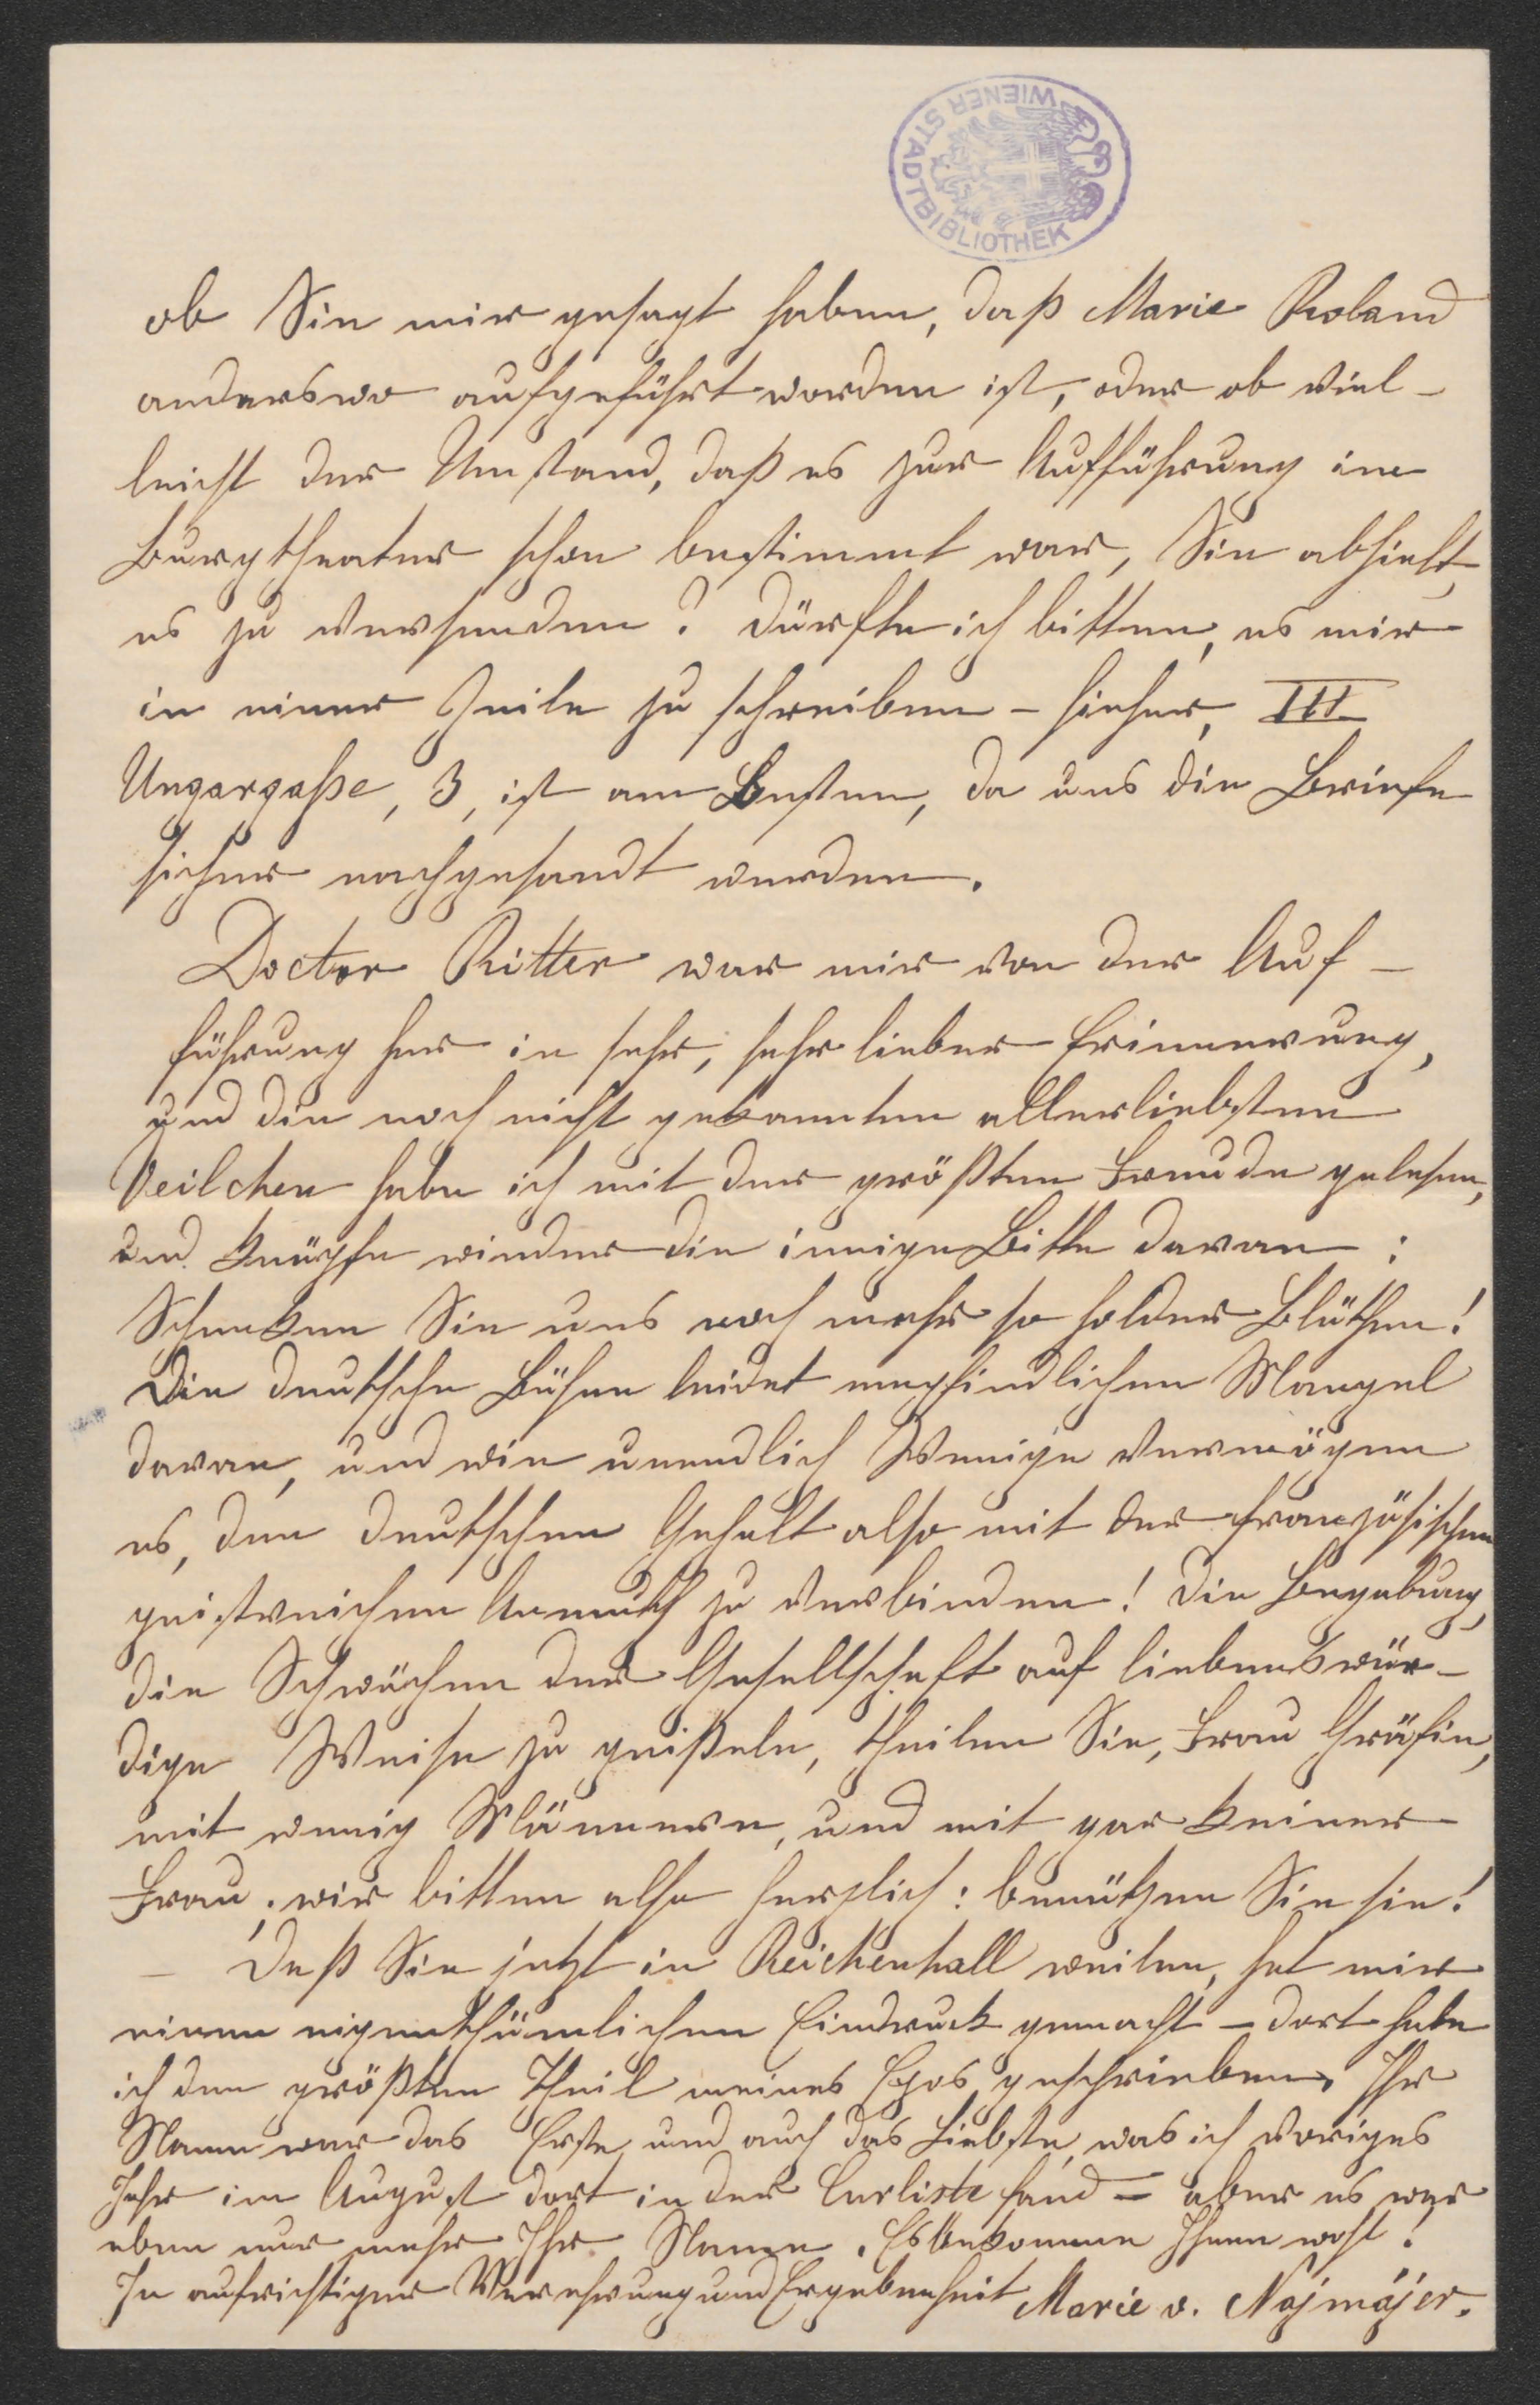 WIENER STADTBIBLIOTHEK
ob Sie mir gesagt haben, daß Marie Roland
anderswo aufgeführt worden ist, oder ob viel-
leicht der Umstand, daß es zur Aufführung im
Burgtheater schon bestimmt war, Sie abhielt,
es zu versenden? Dürfte ich bitten, es mir
in einer Zeile zu schreiben – hieher, III
Ungargaße, 3, ist am Besten, da uns die Briefe
sicher nachgesandt werden.
Doctor Ritter war mir von der Auf-
führung her in sehr, sehr lieber Erinnerung,
und die noch nicht gekannten allerliebsten
Veilchen habe ich mit der größten Freude gelesen,
und knüpfe wieder die innige Bitte daran:
Schenken Sie uns noch mehr so holder Blüthen!
Die deutsche Bühne leidet empfindlichen Mangel
daran, und wie unendlich Wenige vermögen
es, den deutschen Gehalt also mit der französischen
geistreichen Anmuth zu verbinden! Die Begabung,
die Schwächen der Gesellschaft auf liebenswür-
dige Weise zu geißeln, theilen Sie, Frau Gräfin,
mit wenig Männern, und mit gar keiner
Frau; wir bitten also herzlich: benützen Sie sie!
– Daß Sie jetzt in Reichenhall weilen, hat mir
einen eigenthümlichen Eindruck gemacht – dort habe
ich den größten Theil meines Epos geschrieben. Ihr
Name war das Erste und auch das Liebste, was ich voriges
Jahr im August dort in der Curliste fand – aber es war
eben nur mehr Ihr Name. Es bekomme Ihnen wohl!
In aufrichtiger Verehrung und Ergebenheit Marie v. Najmájer.